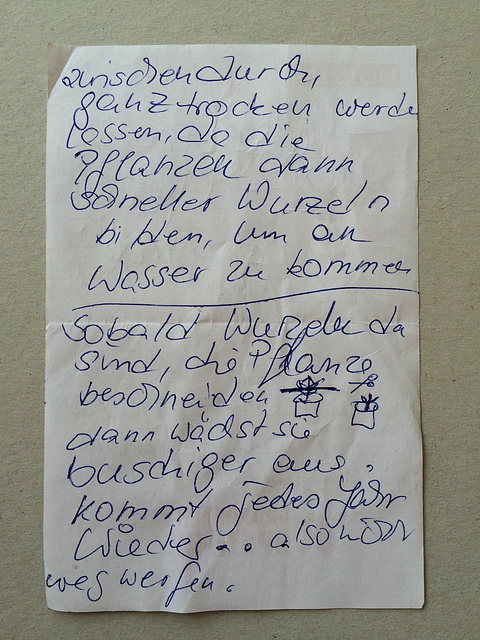 zwischendurch,
ganz trocken werde
lassen, da die
Pflanzen dann
schneller Wurzeln
bilden, um an
Wasser zu kommen
Sobald Wurzeln da
sind, die Pflanze
beschneiden
dann wächst sie
buschiger aus.
kommt jedes Jahr
wieder... also nicht
weg werfen.